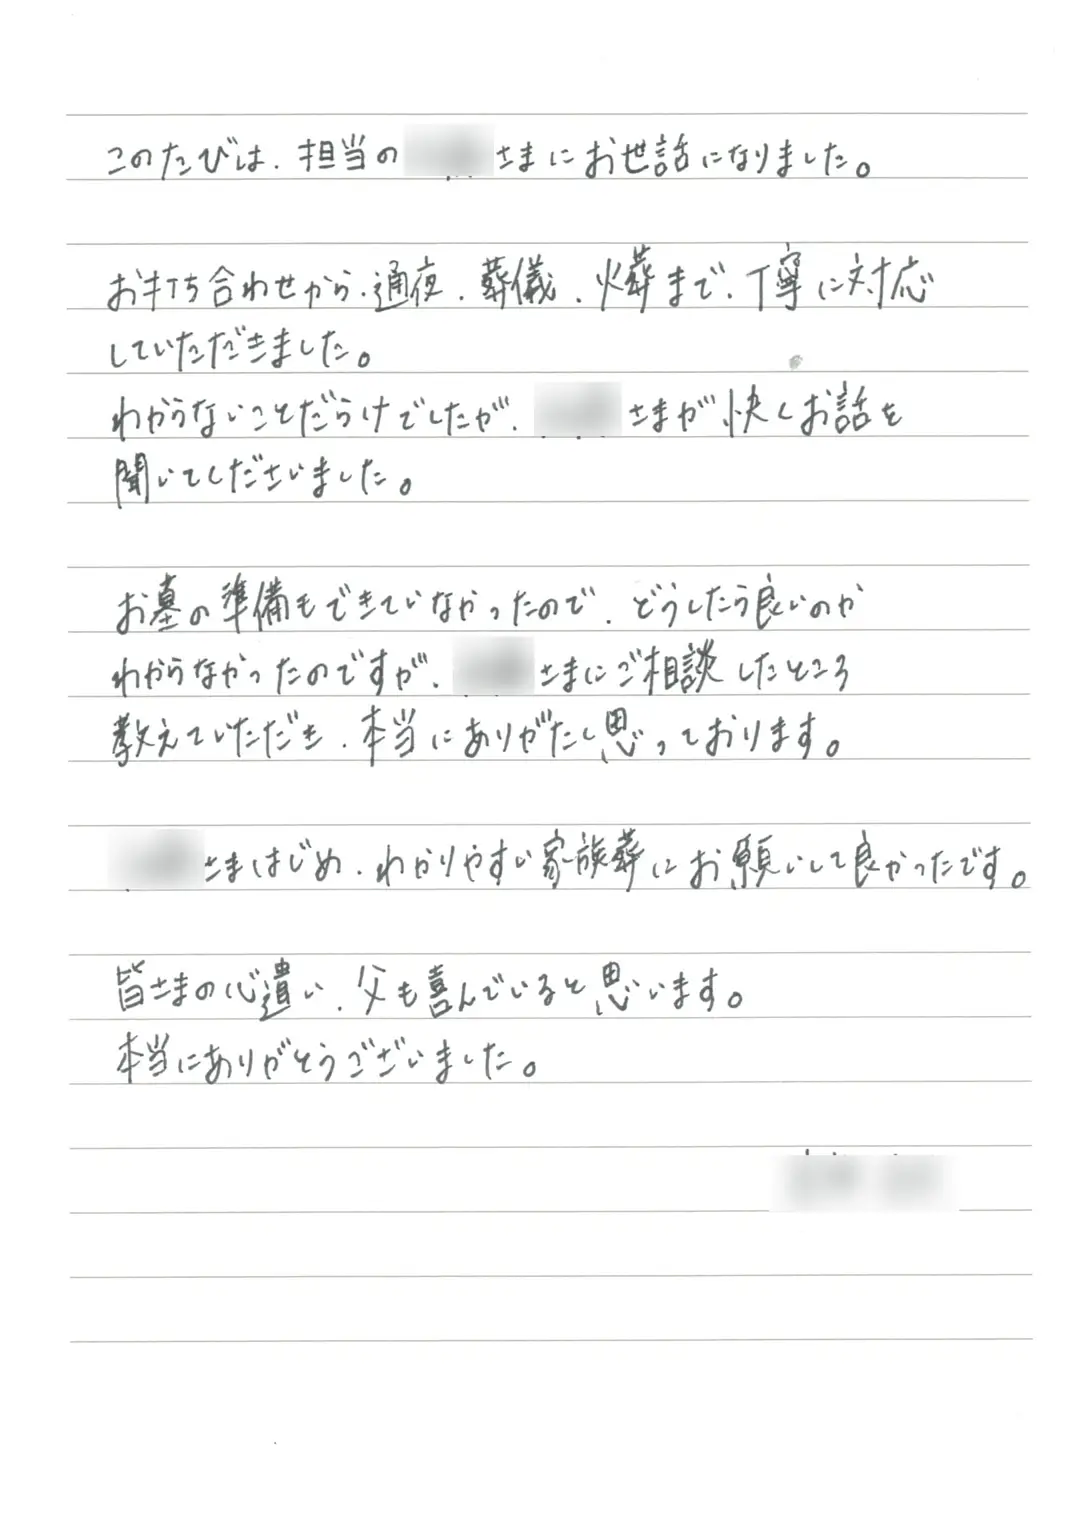 このたびは、担当の さまにお世話になりました。
お打ち合わせから、通夜、葬儀、火葬まで、丁寧に対応
していただきました。
わからないことだらけでしたが、 さまが快くお話を
聞いてくださいました。
お墓の準備もできていなかったので、どうしたら良いのか
わからなかったのですが、 さまにご相談したところ
教えていただき、本当にありがたく思っております。
さまはじめ、わかりやすい家族葬にお願いして良かったです。
皆さまの心遣い、父も喜んでいると思います。
本当にありがとうございました。